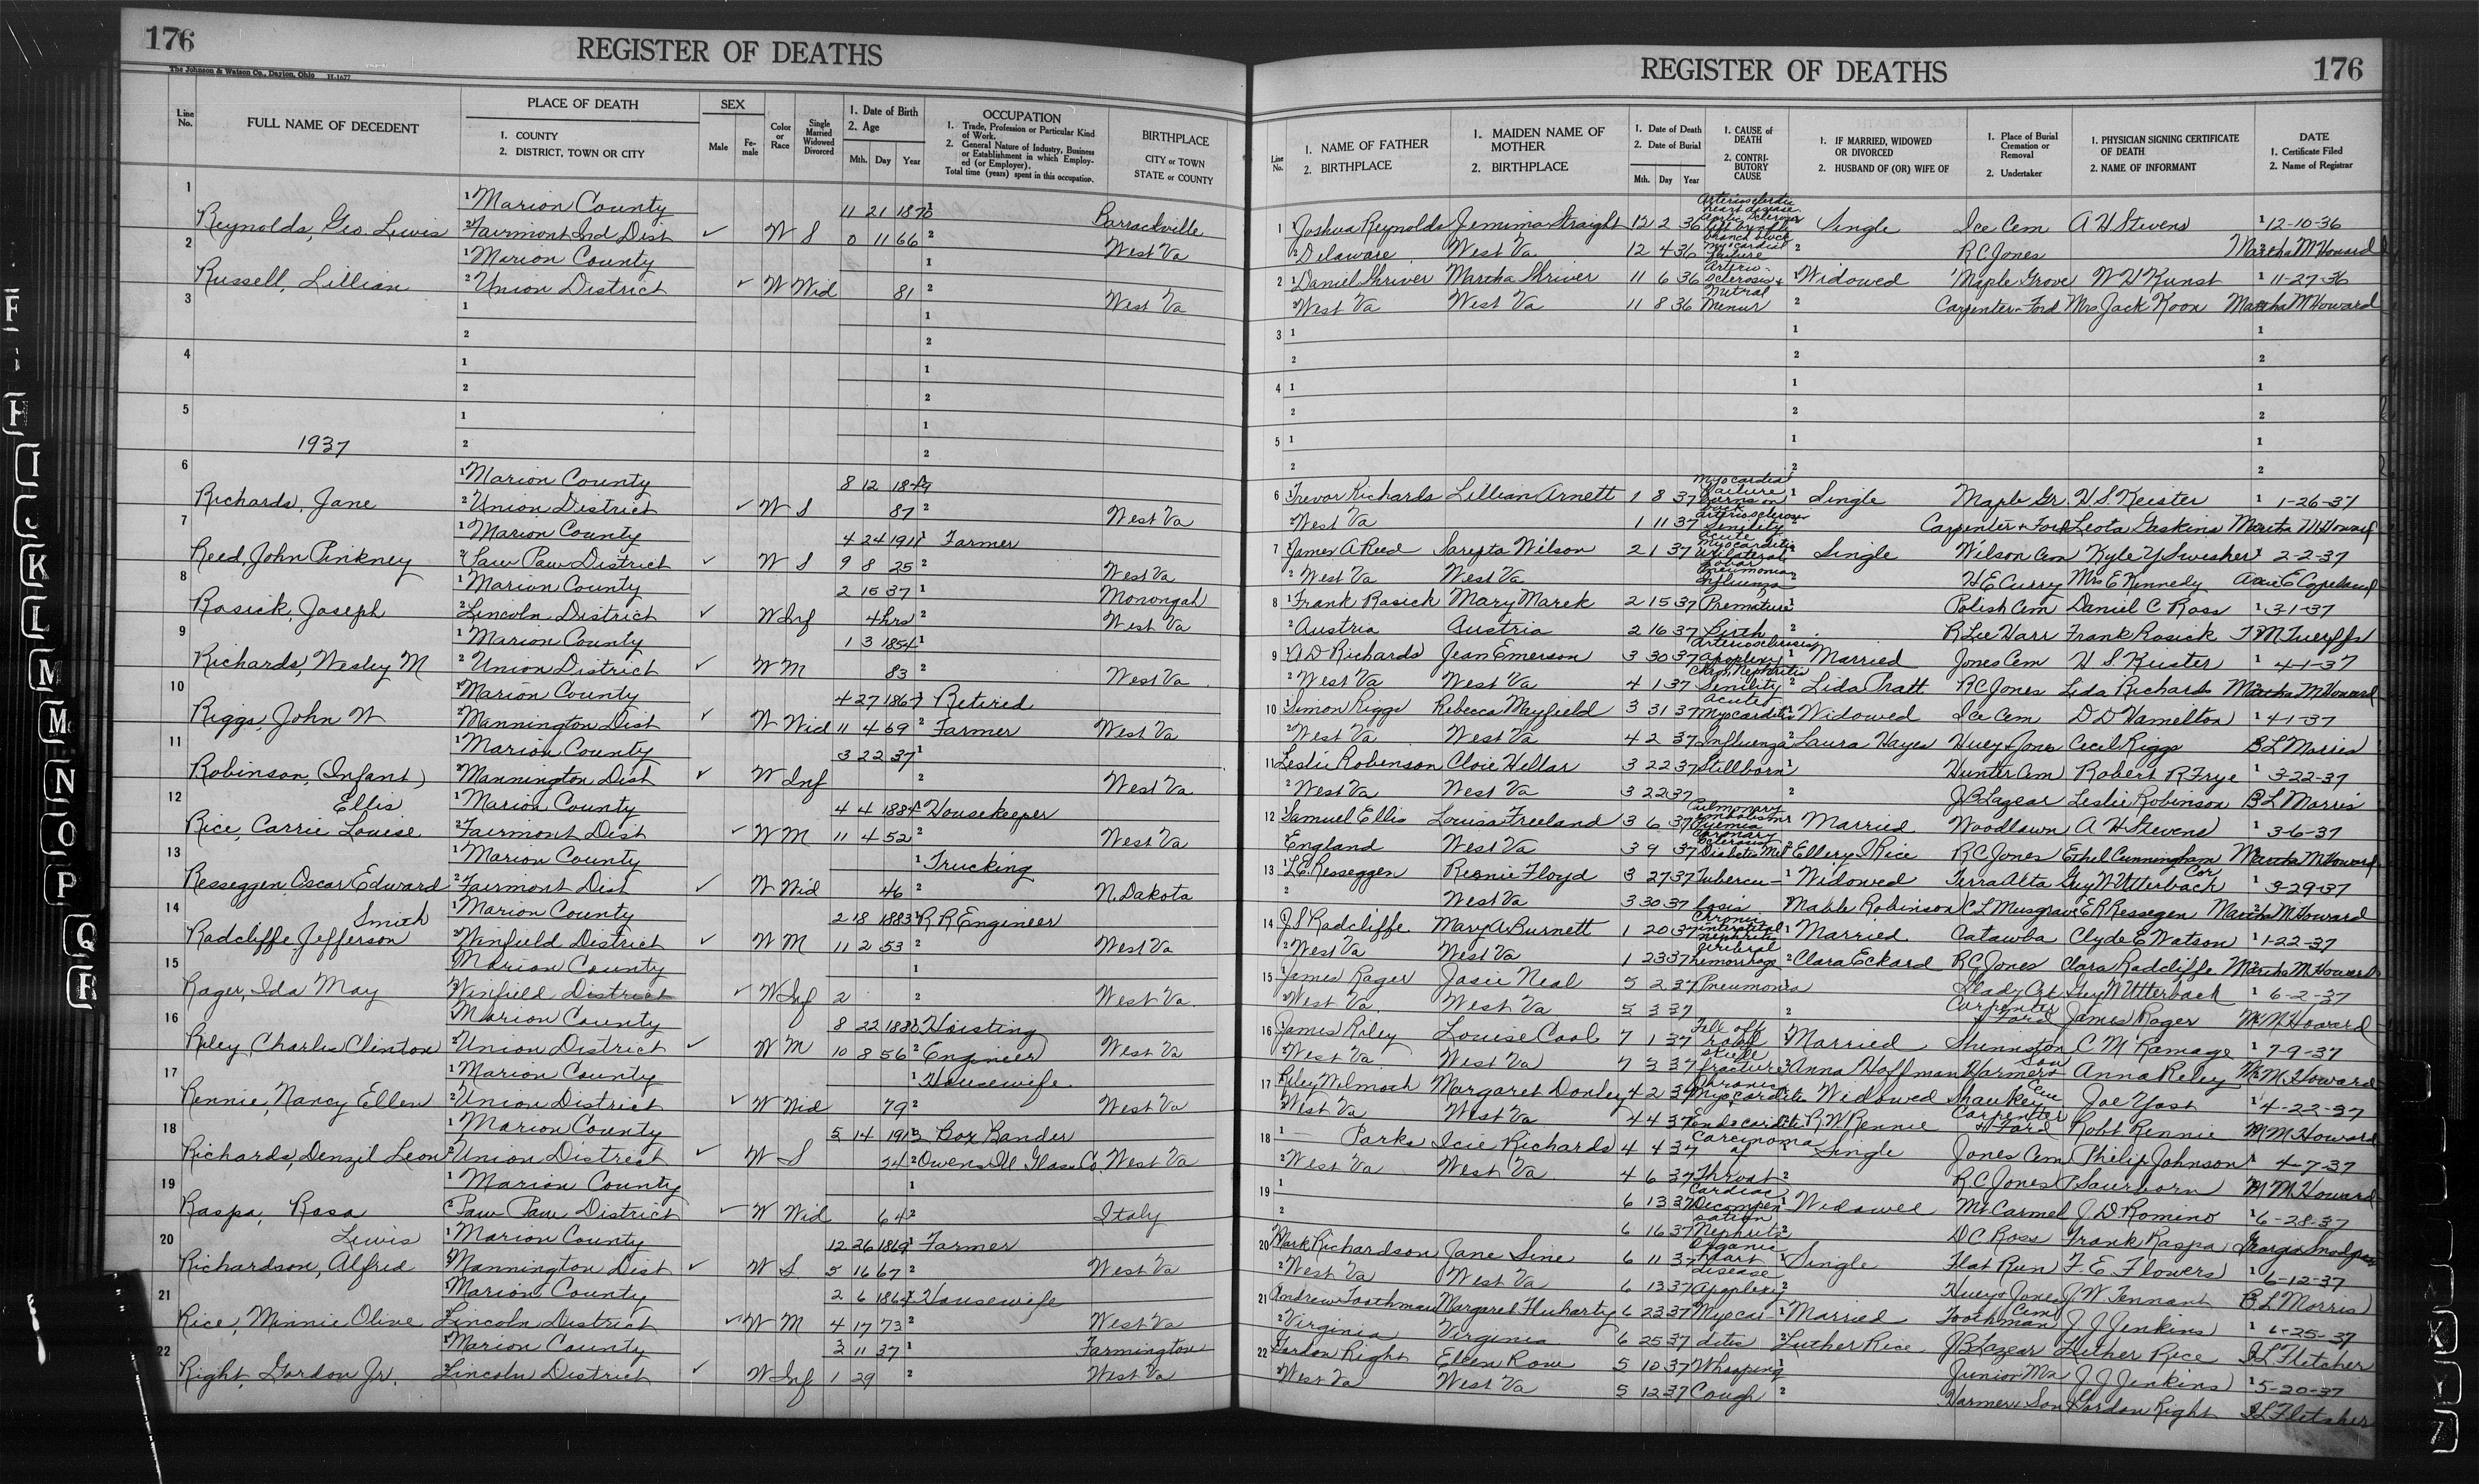 176
REGISTER OF DEATHS
The Johnson & Watson Co., Dayton, Ohio H-1677
Line No. FULL NAME OF DECEDENT PLACE OF DEATH 1. COUNTY 2. DISTRICT, TOWN OR CITY SEX Male Female Color or Race Single Married Widowed Divorced 1. Date of Birth 2. Age Mth. Day Year OCCUPATION 1. Trade, Profession or Particular Kind of Work. 2. General Nature of Industry, Business or Establishment in which Employed (or Employer). Total time (years) spent in this occupation. BIRTHPLACE CITY or TOWN STATE or COUNTY
1 1 Marion County 11 21 1870 1 Barrackville
Reynolds, Geo. Lewis 2 Fairmont Ind Dist ✓ W S 0 11 66 2 West Va
2 1 Marion County 1
Russell, Lillian 2 Union District ✓ W Wid 81 2 West Va
3 1 1
2 2
4 1 1
2 2
5 1 1
1937 2 2
6 1 Marion County 8 12 1849
Richards, Jane 2 Union District ✓ W S 87 2 West Va
7 1 Marion County 4 24 1911 1 Farmer
Reed, John Pinkney 2 Paw Paw District ✓ W S 9 8 25 2 West Va
8 1 Marion County 2 15 37 1 Monongah
Rosick, Joseph 2 Lincoln District ✓ W Inf 4 hrs 2 West Va
9 1 Marion County 1 3 1854 1
Richards, Wesley M 2 Union District ✓ W M 83 2 West Va
10 1 Marion County 4 27 1867 1 Retired
Riggs, John W 2 Mannington Dist ✓ W Wid 11 4 69 2 Farmer West Va
11 1 Marion County 3 22 37 1
Robinson, (Infant) 2 Mannington Dist ✓ W Inf 2 West Va
12 Ellis 1 Marion County 4 4 1884 1 Housekeeper
Rice, Carrie Louise 2 Fairmont Dist ✓ W M 11 4 52 2 West Va
13 1 Marion County 1 Trucking
Resseggen, Oscar Edward 2 Fairmont Dist ✓ W Wid 46 2 N. Dakota
14 Smith 1 Marion County 2 18 1883 1 R R Engineer
Radcliffe, Jefferson 2 Winfield District ✓ W M 11 2 53 2 West Va
15 1 Marion County 1
Rager, Ida May 2 Winfield District ✓ W Inf 2 2 West Va
16 1 Marion County 8 22 1880 1 Hoisting
Riley, Charles Clinton 2 Union District ✓ W M 10 8 56 2 Engineer West Va
17 1 Marion County 1 Housewife
Rennie, Nancy Ellen 2 Union District ✓ W Wid 79 2 West Va
18 1 Marion County 5 14 1913 Box Bander
Richards, Denzil Leon 2 Union District ✓ W S 24 2 Owens Ill Glass Co. West Va
19 1 Marion County 1
Raspa, Rosa 2 Paw Paw District ✓ W Wid 64 2 Italy
20 Lewis 1 Marion County 12 26 1869 1 Farmer
Richardson, Alfred 2 Mannington Dist ✓ W S 5 16 67 2 West Va
21 Marion County 2 6 1864 1 Housewife
Rice, Minnie Olive Lincoln District ✓ W M 4 17 73 2 West Va
22 Marion County 3 11 37 1 Farmington
Right, Gordon Jr. 2 Lincoln District ✓ W Inf 1 29 2 West Va
REGISTER OF DEATHS
176
Line No. 1. NAME OF FATHER 2. BIRTHPLACE 1. MAIDEN NAME OF MOTHER 2. BIRTHPLACE 1. Date of Death 2. Date of Burial Mth. Day Year 1. CAUSE of DEATH 2. CONTRIBUTORY CAUSE 1. IF MARRIED, WIDOWED OR DIVORCED 2. HUSBAND OF (OR) WIFE OF 1. Place of Burial Cremation or Removal 2. Undertaker 1. PHYSICIAN SIGNING CERTIFICATE OF DEATH 2. NAME OF INFORMANT DATE 1. Certificate Filed 2. Name of Registrar
1 Joshua Reynolds Jemima Straight 12 2 36 Arteriosclerotic heart disease Aortic Sclerosis Single Ice Cem A H Stevens 1 12-10-36
2 Delaware West Va 12 4 36 branch block myocardial failure 2 R C Jones Martha M Howard
2 1 Daniel Shriver Martha Shriver 11 6 36 Arteriosclerosis & 1 Widowed Maple Grove W H Kunst 1 11-27-36
2 West Va West Va 11 8 36 Mitral 2 Carpenter-Ford Mrs Jack Koon Martha M Howard
3 1 1 1
2 2 2
4 1 1 1
2 2 2
5 1 1 1
2 2 2
6 1 Trevor Richards Lillian Arnett 1 8 37 Myocardial failure burns on back 1 Single Maple Gr. H. S. Keister 1 1-26-37
2 West Va 1 11 37 arteriosclerosis Senility 2 Carpenter & Ford Leota Gaskins Martha M Howard
7 James A Reed Sarepta Wilson 2 1 37 acute myocarditis Single Wilson Cem Kyle Y Swisher 1 2-2-37
2 West Va West Va lobar pneumonia Influenza 2 H E Curry Mrs E Kennedy
8 1 Frank Rosick Mary Marek 2 15 37 Premature 1 Polish Cem Daniel C Ross 1 3-1-37
2 Austria Austria 2 16 37 Birth 2 R Lee Harr Frank Rosick
9 1 A D Richards Jean Emerson 3 30 37 Arteriosclerosis apoplexy 1 Married Jones Cem H S Keister 1 4-1-37
2 West Va West Va 4 1 37 Chr. Nephritis Senility 2 Lida Pratt R C Jones Lida Richards Martha M Howard
10 Simon Riggs Rebecca Mayfield 3 31 37 acute Myocarditis Widowed Ice Cem D D Hamilton 1 4-1-37
2 West Va West Va 4 2 37 Influenza 2 Laura Hayes Huey & Jones Cecil Riggs B L Morris
11 Leslie Robinson Cloie Hellar 3 22 37 Stillborn 1 Hunter Cem Robert R Frye 1 3-22-37
2 West Va West Va 3 22 37 2 J B Lazear Leslie Robinson B L Morris
12 Samuel Ellis Louisa Freeland 3 6 37 Pulmonary embolism Married Woodlawn A H Stevens 1 3-6-37
England West Va 3 9 37 Coronary Sclerosis Diabetis Mel 2 Ellery I Rice R C Jones Ethel Cunningham Martha M Howard
13 1 L. E. Resseggen Floyd 3 27 37 Tubercu- 1 Widowed Terra Alta Guy W Utterback Cor 1 3-29-37
2 West Va 3 30 37 losis 2 Mable Robinson C L Musgrave E R Ressegen Martha M Howard
14 J. S. Radcliffe Mary A Burnett 1 20 37 Chronic interstitial nephritis 1 Married Catawba Clyde E Watson 1 1-22-37
2 West Va West Va 1 23 37 cerebral hemorrhage 2 Clara Eckard R C Jones Clara Radcliffe Martha M Howard
15 James Rager Josie Neal 5 2 37 Pneumonia Guy W Utterback 1 6-2-37
2 West Va. West Va 5 3 37 2 Carpenter & Ford James Rager M. M Howard
16 James Riley Louise Cool 7 1 37 Fell off Married Shinnston C. M Ramage 1 7-9-37
2 West Va West Va 7 3 37 fracture 2 Anna Hoffman Harmer & Son Anna Reley M. M. Howard
17 Riley Wilmoth Margaret Donley 4 2 37 Chronic Myocarditis Widowed Cem Joe Yost 1 4-22-37
2 West Va West Va 4 4 37 Endocarditis R. W. Rennie Carpenter & Ford Robt Rennie M M. Howard
18 1 — Parks Icie Richards 4 4 37 Carcinoma of 1 Single Jones Cem Philip Johnson 1 4-7-37
2 West Va West Va 4 6 37 Throat 2 R C Jones P Saurborn M M. Howard
19 1 6 13 37 Cardiac Decompensation 1 Widowed Mt Carmel J. D. Romino 1 6-28-37
2 6 16 37 Nephritis 2 D C. Ross Frank Raspa
20 Mark Richardson Jane Sine 6 11 37 Organic heart disease 1 Single Flat Run F. E. Flowers 1 6-12-37
2 West Va West Va 6 13 37 Apoplexy 2 Huey & Jones J. W. Tennant B L Morris
21 Andrew Toothman Margaret Fluharty 6 23 37 Myocar- 1 Married Toothman Cem J J Jenkins 1 6-25-37
2 Virginia Virginia 6 25 37 ditis 2 Luther Rice J B Lazear Luther Rice J L Fletcher
22 Gordon Right Ellen Row 5 10 37 Whooping Junior J J Jenkins 1 5-20-37
2 West Va West Va 5 12 37 Cough 2 Harmer & Son Gordon Right J L Fletcher